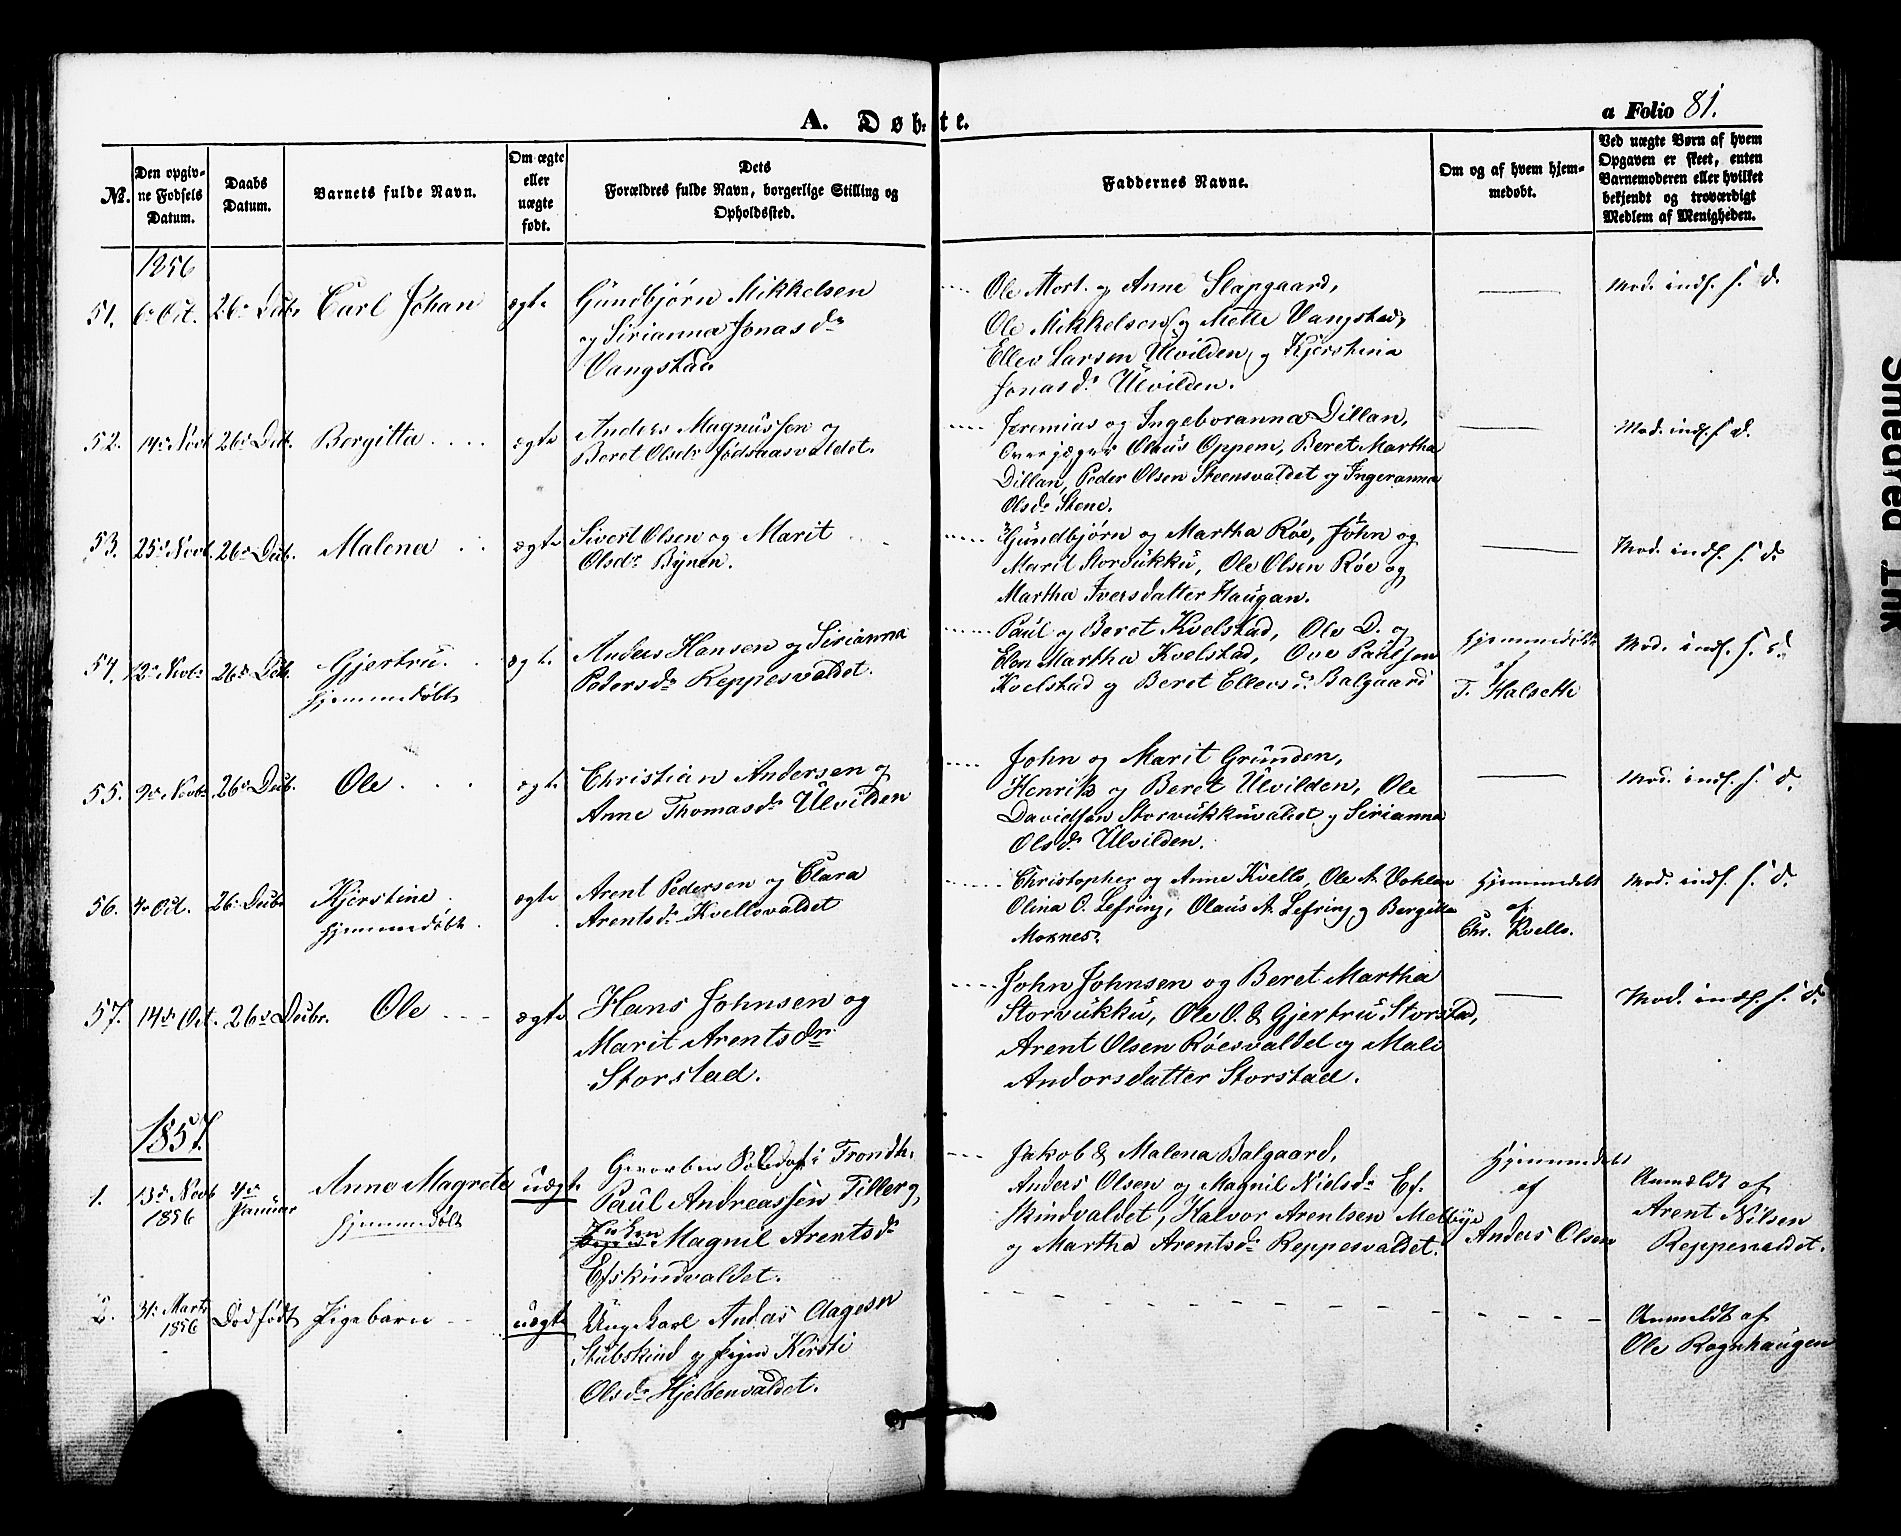 A. Døb- te.
a Folio 81.
№.
Den opgiv-
ne Fødsels
Datum.
Daabs
Datum.
Barnets fulde Navn.
Om ægte
eller
uægte
født.
Dets
Forældres fulde Navn, borgerlige Stilling og
Opholdssted.
Faddernes Navne.
Om og af hvem hjem-
medøbt.
Ved uægte Børn af hvem
Opgaven er skeet, enten
Barnemoderen eller hvilket
bekjendt og troværdigt
Medlem af Menigheden.
1856
51. 6te Oct. 26de Decbr. Carl Johan ægte
Gundbjørn Mikkelsen
og Sirianna Jonasdr
Vangstad.
Ole Mort. og Anne Slapgaard,
Ole Mikkelsen og Mette Vangstad,
Ellev Larsen Ulvilden og Kjerstina
Jonasdr Ulvilden.
Mod. indf. s. d.
52. 14de Novb. 26de Decb. Bergitta ægte
Anders Magnussen og
Beret Olsdr Fødsaasvaldet.
Jeremias og Ingeboranna Dillan,
Overjæger Olaus Oppem, Beret Martha
Dillan, Peder Olsen Steensvaldet og Ingeranna
Olsdr Stene.
Mod. indf. s. d.
53. 25de Novb. 26de Decb. Malena ægte
Sivert Olsen og Marit
Olsdr Bynen.
Gundbjørn og Martha Røe, John og
Marit Storvukku, Ole Olsen Røe og
Martha Iversdatter Haugan.
Mod. indf. s. d.
54. 12te Novbr 26de Decb. Gjertru. ægte
hjemmedøbt
Anders Hansen og Sirianna
Pedersdr Reppesvaldet.
Paul og Beret Kvelstad, Ole D. og
Elen Martha Kvelstad, Ove Paulsen
Kvelstad og Beret Ellevsd. Balgaard
Hjemmedøbt
af
T. Halseth
Mod. indf. s. d.
55. 9de Novbr 26de Decb. Ole ægte
Christian Andersen og
Anne Thomasdr Ulvilden
John og Marit Grunden,
Henrik og Beret Ulvilden, Ole
Davidsen Storvukkuvaldet og Sirianna
Olsdr Ulvilden.
Mod. indf. s. d.
56. 4de Oct. 26de Decbr Kjerstine ægte
hjemmedøbt.
Arent Pedersen og Clara
Arentsdr Kvellovaldet
Christopher og Anne Kvello, Ole A. Vohlen
Olina O. Lefring, Olaus A. Lefring og Bergitta
Moxnes.
Hjemmedøbt
af
Chr. Kvello.
Mod. indf. s. d.
57. 14de Oct. 26de Decbr. Ole ægte
Hans Johnsen og
Marit Arentsdr
Storstad.
John Johnsen og Beret Martha
Storvukku, Ole O. & Gjertru Storstad,
Arent Olsen Røesvaldet og Mali
Andorsdatter Storstad.
Mod. indf. s. d.
1857.
1. 13de Novb 1856 4de Januar Anne Magrete uægte
hjemmedøbt
Gevorben Soldat i Trondh.
Paul Andreassen Tiller og
Magnil Arentsdr
Efskindvaldet.
Jakob & Malena Balgaard,
Anders Olsen og Magnil Nielsdr Ef-
skindvaldet, Halvor Arentsen Melbye
og Martha Arentsdr Reppesvaldet.
Hjemmedøbt
af
Anders Olsen
Anmeldt af
Arent Nilsen
Reppesvaldet.
2. 31te Marts 1856 Dødfødt Pigebarn uægte
Ungkarl Andas Aagesen
Stubskind og Pigen Kirsti
Olsdr Hjeldenvaldet.
Anmeldt af
Ole Rognhaugen
Smeared Ink